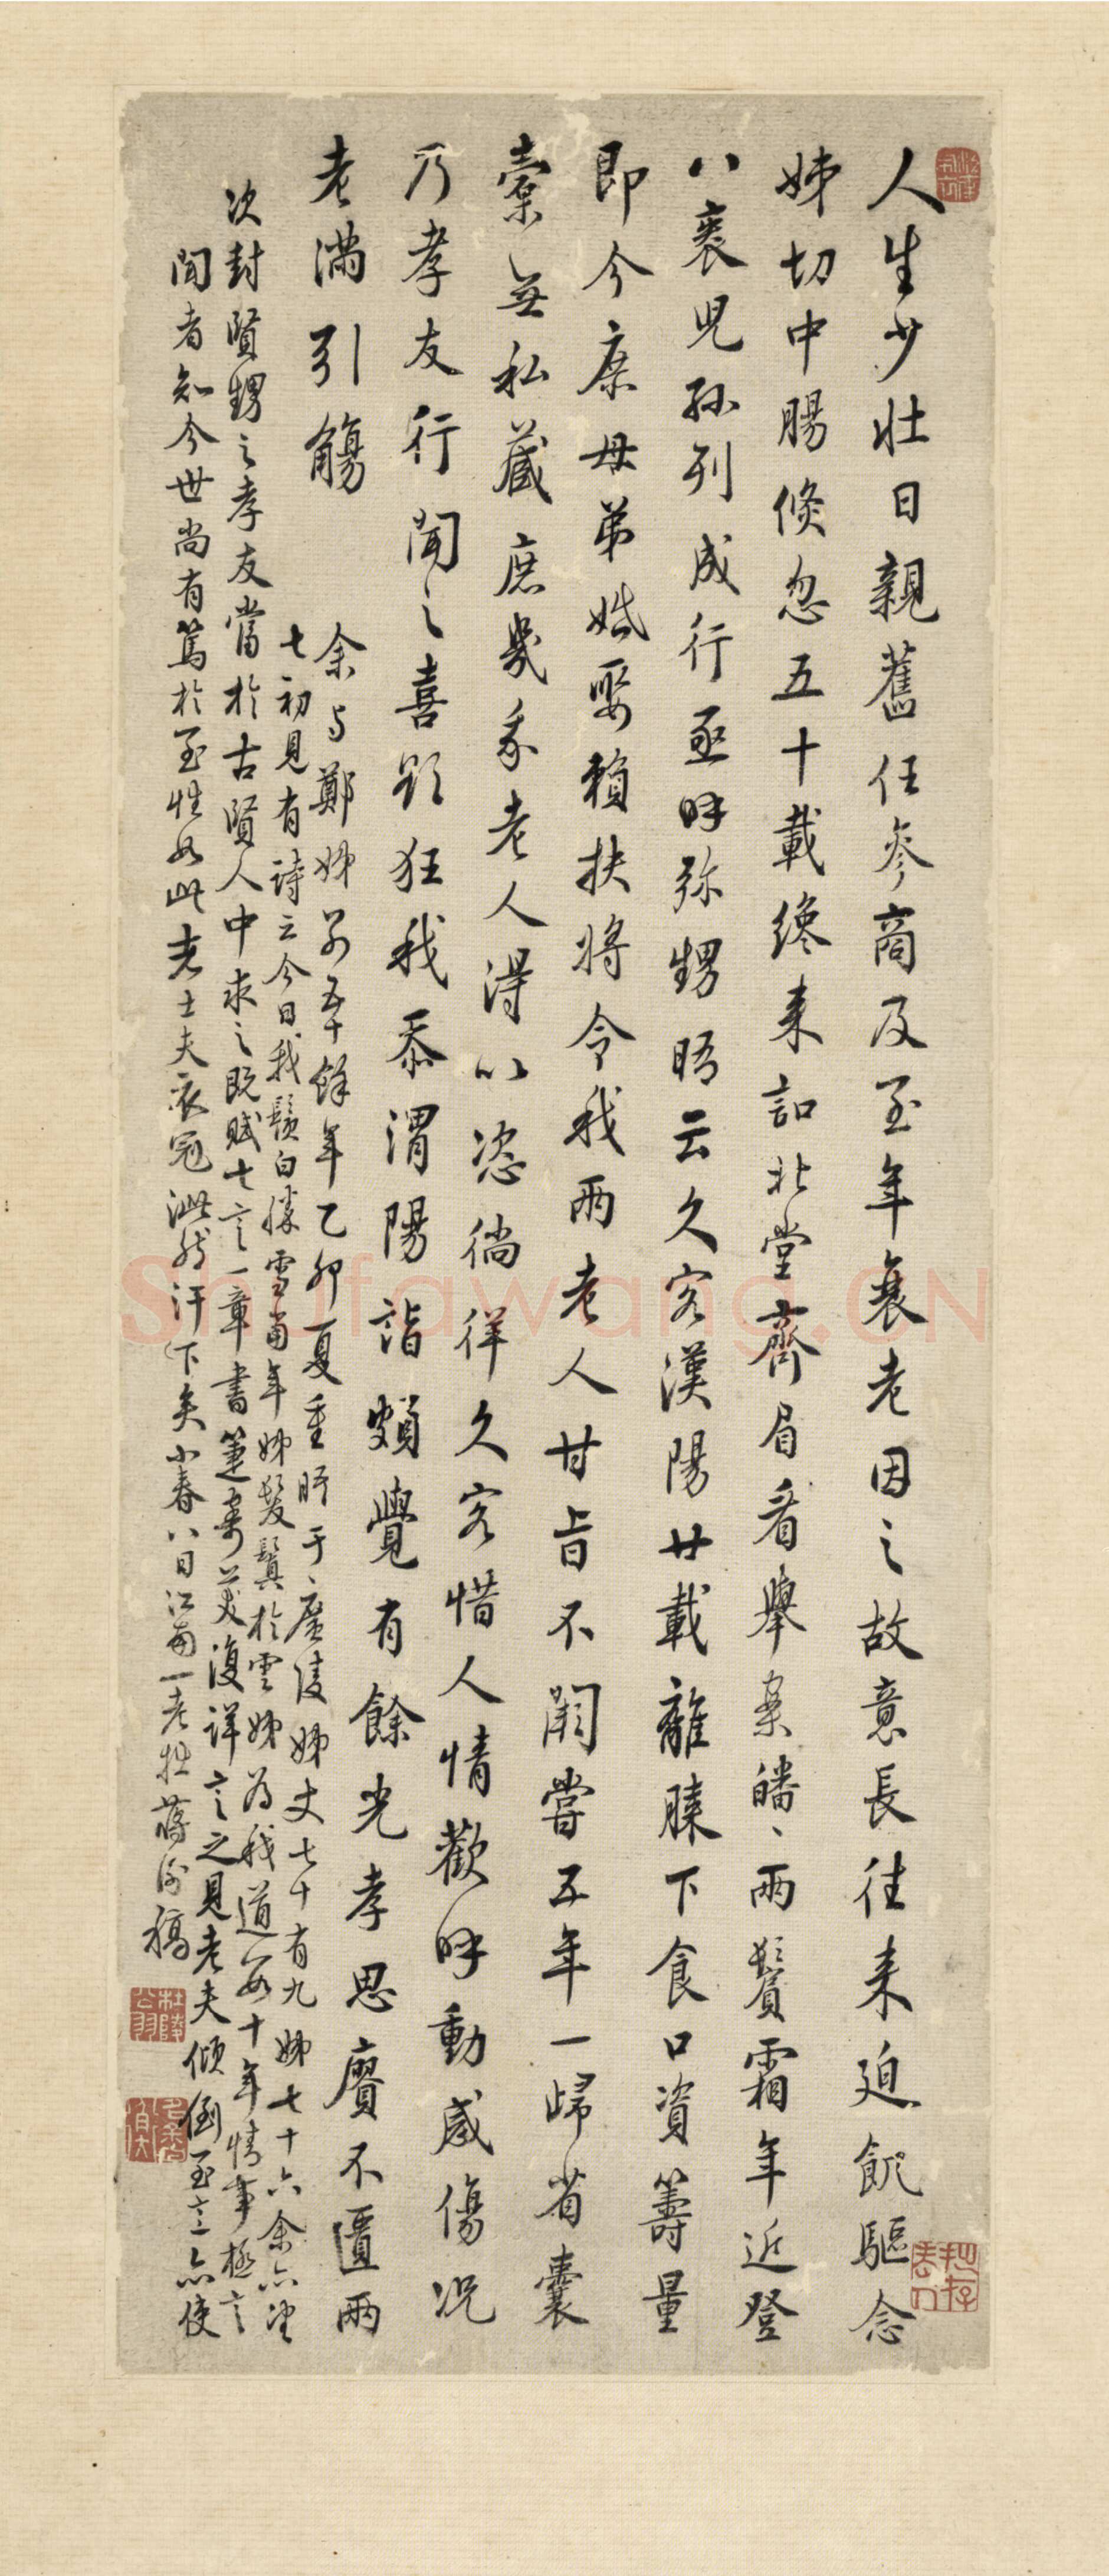 人生少壯日親舊任參商及至年衰老因之故意長往來迫飢驅念
姊切中腸倏忽五十載纔來詔北堂齊眉看舉案皤〻兩鬢霜年近登
八袠兒孫列成行亟呼彌甥晤云久客漢陽廿載離膝下食口資籌量
即今康母弟婚娶賴扶將令我兩老人甘旨不闕嘗五年一歸省囊
橐無私藏庶幾我老人得以恣徜徉久客惜人情歡呼動感傷況
乃孝友行聞之喜欲狂我忝渭陽詣頗覺有餘光孝思賡不匱兩
老滿引觴
余與鄭姊別五十餘年乙卯夏重晤于廣陵姊丈七十有九姊七十六余六望
七初見有詩云今日我鬚白勝雪當年姊髮鬒於雲姊為我道數十年情事極言
次封賢甥之孝友當於古賢人中求之既賦七言一章書箑寄美復詳言之見老夫傾倒至意亦使
聞者知今世尚有篤於至性如此者士夫衣冠泚然汗下矣小春八日江南一老牧蔣衡稿